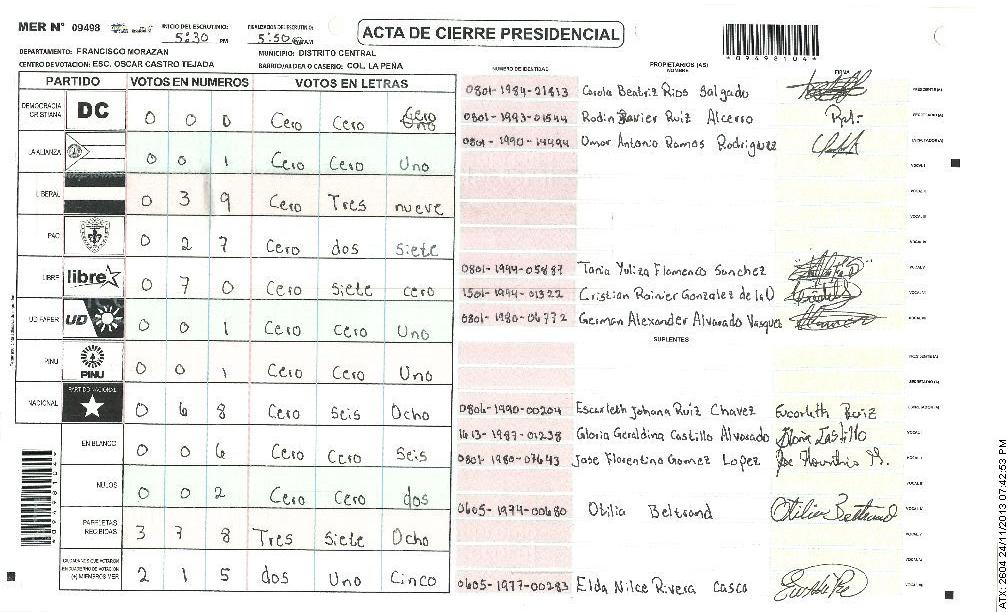 MER N° 09498 INICIO DEL ESCRUTINIO: 5:30 PM FINALIZACION DEL ESCRUTINIO: 5:50 AM
ACTA DE CIERRE PRESIDENCIAL
*09498104*
DEPARTAMENTO: FRANCISCO MORAZAN MUNICIPIO: DISTRITO CENTRAL
CENTRO DE VOTACION: ESC. OSCAR CASTRO TEJADA BARRIO/ALDEA O CASERIO: COL. LA PEÑA
PARTIDO VOTOS EN NUMEROS VOTOS EN LETRAS
DEMOCRACIA CRISTIANA DC 0 0 0 Cero Cero Cero
LA ALIANZA 0 0 1 Cero Cero Uno
LIBERAL 0 3 9 Cero Tres nueve
PAC 0 2 7 Cero dos Siete
LIBRE libre 0 7 0 Cero Siete cero
UD FAPER UD 0 0 1 Cero Cero Uno
PINU PINU 0 0 1 Cero Cero Uno
NACIONAL PARTIDO NACIONAL 0 6 8 Cero Seis Ocho
EN BLANCO 0 0 6 Cero Cero Seis
NULOS 0 0 2 Cero Cero dos
PAPELETAS RECIBIDAS 3 7 8 Tres Siete Ocho
CIUDADANOS QUE VOTARON EN CUADERNO DE VOTACION (+) MIEMBROS MER 2 1 5 dos Uno Cinco
NUMERO DE IDENTIDAD PROPIETARIOS (AS) NOMBRE FIRMA
0801-1984-21813 Carola Beatriz Rios Salgado PRESIDENTE(A)
0801-1993-01544 Rodin Xavier Ruiz Alcerro SECRETARIO(A)
0801-1990-14494 Omar Antonio Ramos Rodriguez ESCRUTADOR(A)
0801-1994-05887 Tania Yuliza Flamenco Sanchez
1501-1994-01322 Cristian Rainier Gonzalez de la O
0801-1980-06772 German Alexander Alvarado Vasquez
SUPLENTES
PRESIDENTE(A)
SECRETARIO(A)
0806-1990-00204 Escarleth Johana Ruiz Chavez Escarleth Ruiz ESCRUTADOR(A)
1613-1987-01238 Gloria Geraldina Castillo Alvarado Gloria Castillo
0801-1980-07643 Jose Florentino Gomez Lopez
0605-1974-00680 Otilia Beltrand Otilia Beltrand
0605-1977-00283 Elda Nilce Rivera Casco
ATX-2604 24/11/2013 07:42:53 PM